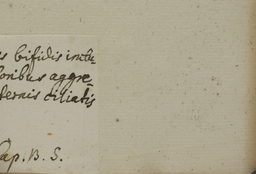 s bifidis inte-
oribus aggre-
ternis ciliatis
Cap. B. S.